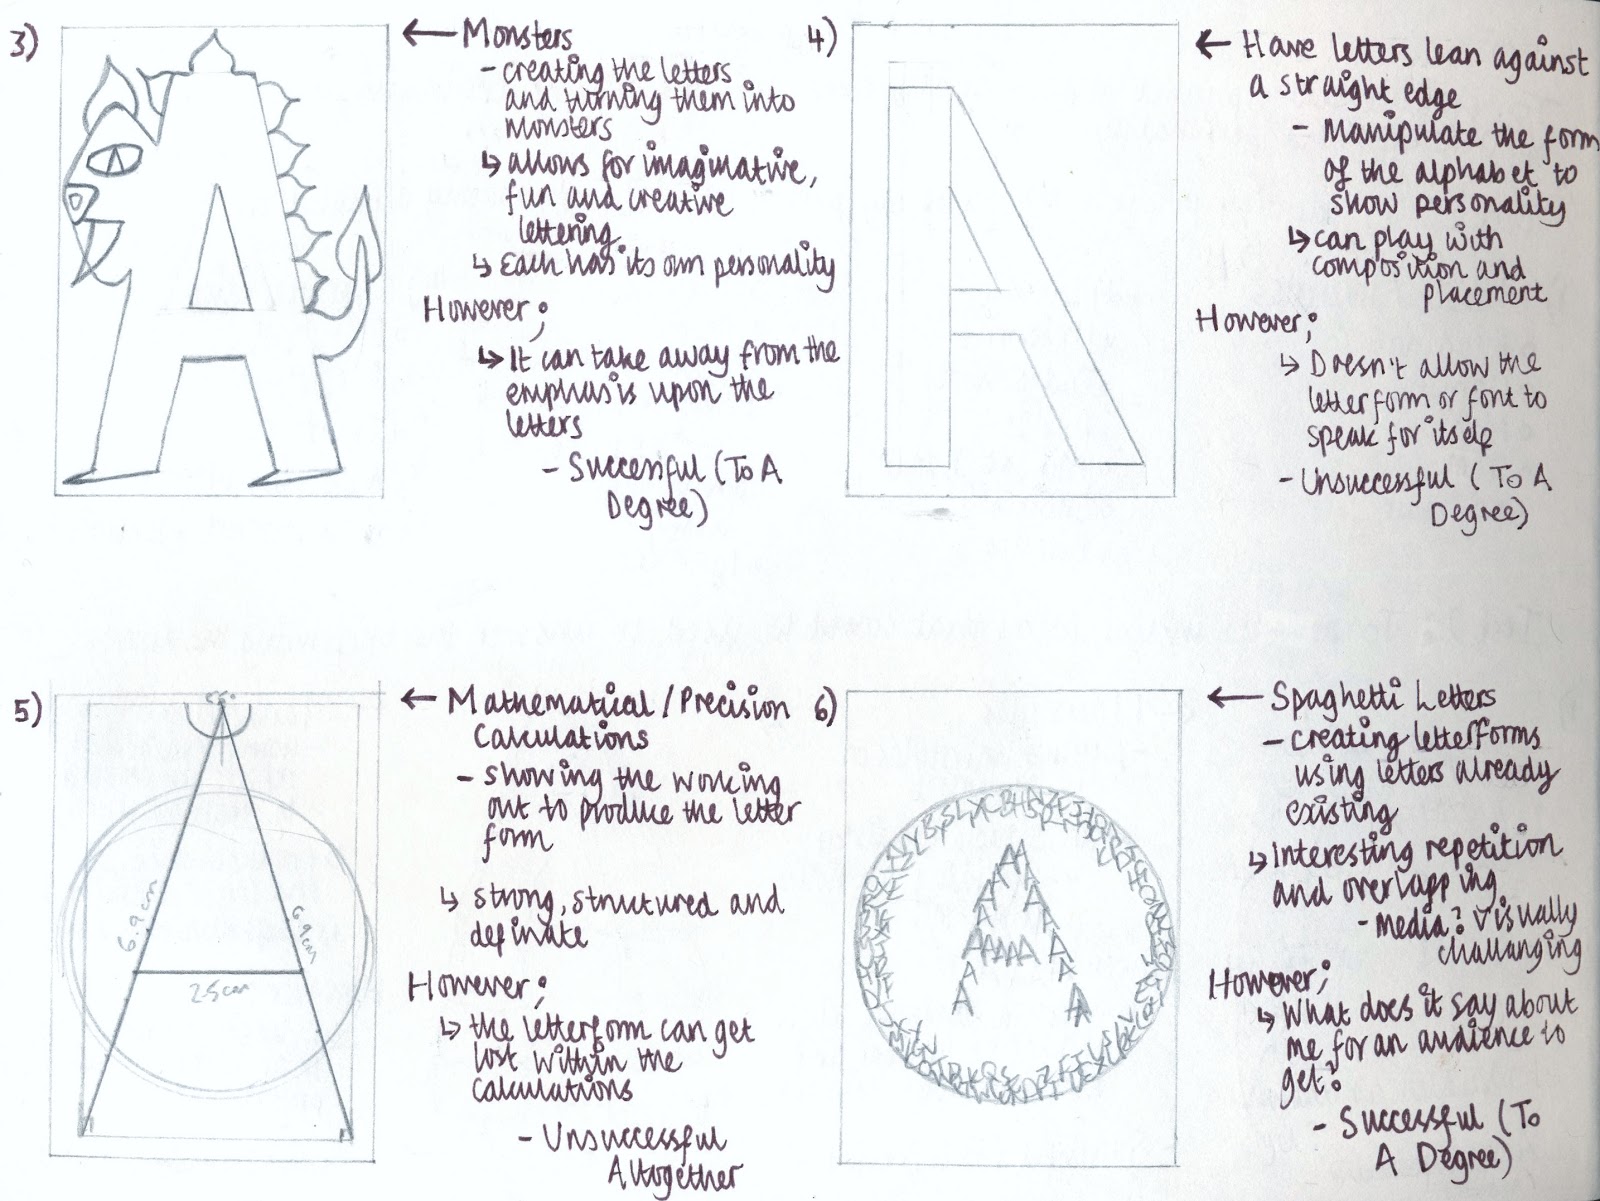 3)
← Monsters
- creating the letters
and turning them into
monsters
↳ allows for imaginative,
fun and creative
lettering
↳ Each has its own personality
However;
↳ It can take away from the
emphasis upon the
letters
- Successful (To A
Degree)
4)
← Have letters lean against
a straight edge
- Manipulate the form
of the alphabet to
show personality
↳ can play with
composition and
placement
However;
↳ Doesn't allow the
letterform or font to
speak for itself
- Unsuccessful (To A
Degree)
5)
6.9cm
6.9cm
2.5cm
← Mathematical / Precision
Calculations
- showing the working
out to produce the letter
form
↳ strong, structured and
definate
However;
↳ the letterform can get
lost within the
calculations
- Unsuccessful
Altogether
6)
← Spaghetti Letters
- creating letterforms
using letters already
existing
↳ Interesting repetition
and overlapping
- media? visually
challanging
However;
↳ What does it say about
me for an audience to
get?
- Successful (To
A Degree)